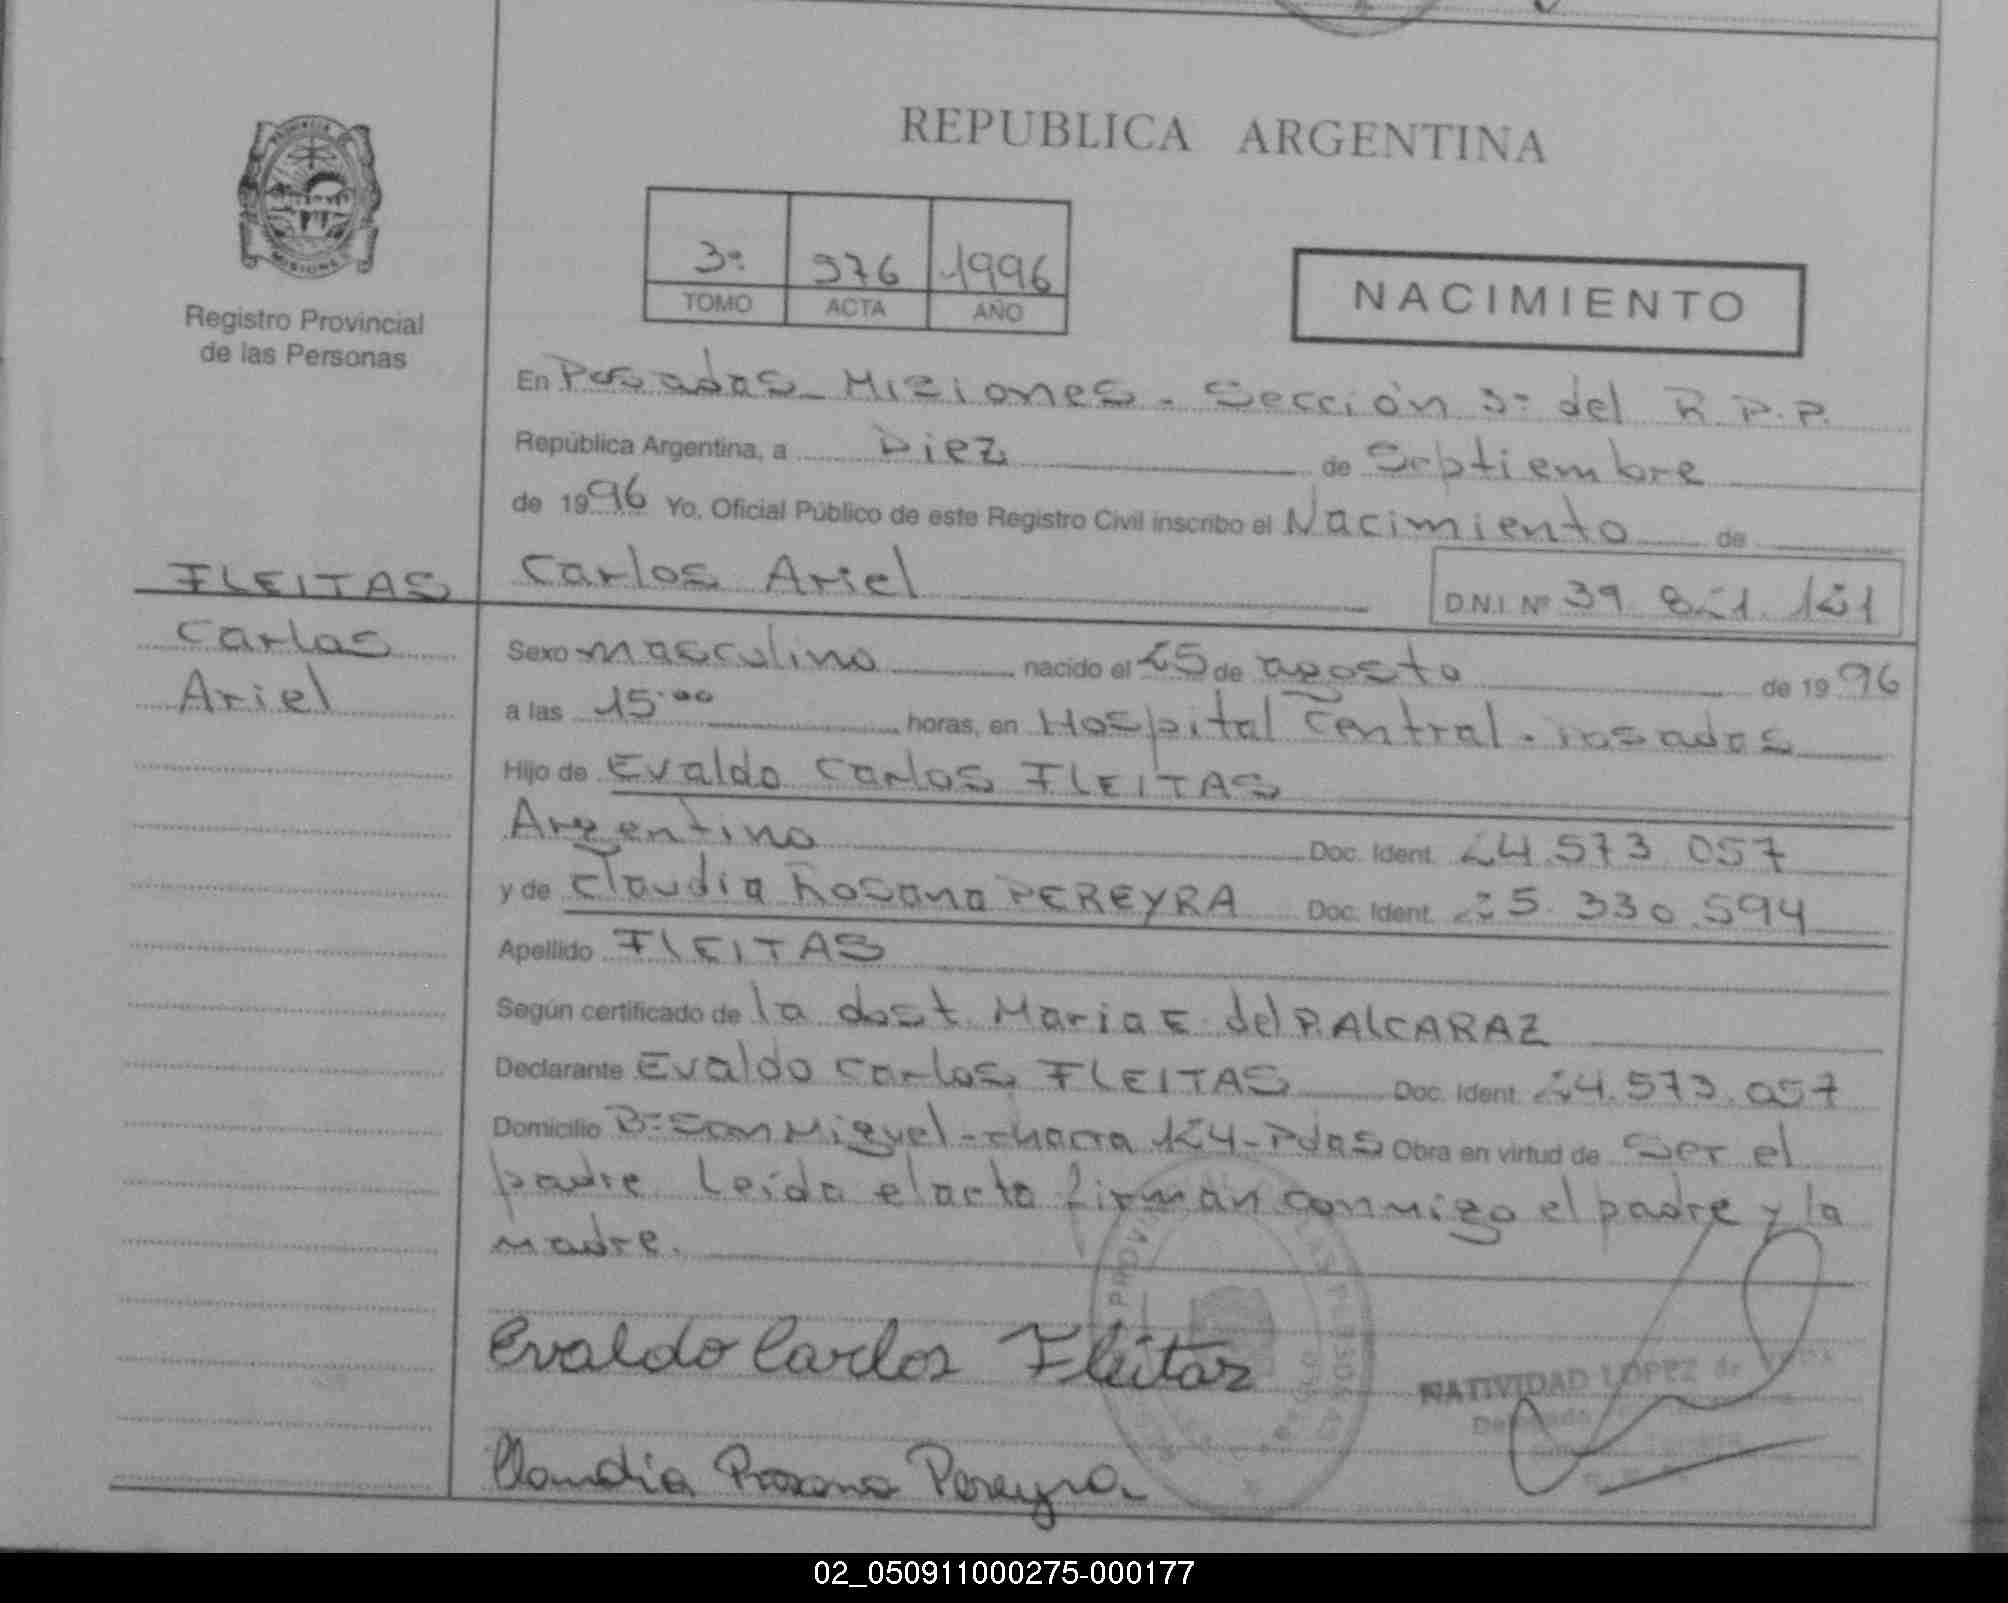 REPUBLICA ARGENTINA
PROVINCIA
MISIONES
Registro Provincial
de las Personas
3º 976 1996
TOMO ACTA AÑO
NACIMIENTO
En Posadas - Misiones - Sección 3º del R.P.P.
República Argentina, a Diez de Septiembre
de 1996 Yo, Oficial Público de este Registro Civil inscribo el Nacimiento de
FLEITAS Carlos Ariel D.N.I. Nº 39.821.121
Carlos
Ariel
Sexo masculino nacido el 25 de agosto de 1996
a las 15:00 horas, en Hospital Central - Posadas
Hijo de Evaldo Carlos FLEITAS
Argentino Doc. Ident. 24.573.057
y de Claudia Rosana PEREYRA Doc. Ident. 25.330.594
Apellido FLEITAS
Según certificado de la obst. Maria E. del P. ALCARAZ
Declarante Evaldo Carlos FLEITAS Doc. Ident. 24.573.057
Domicilio Bº San Miguel - chacra 124 - Pdas Obra en virtud de Ser el
padre. Leída el acta firman conmigo el padre y la
madre.
Evaldo Carlos Fleitas
NATIVIDAD LOPEZ de
Claudia Rosana Pereyra
02_050911000275-000177